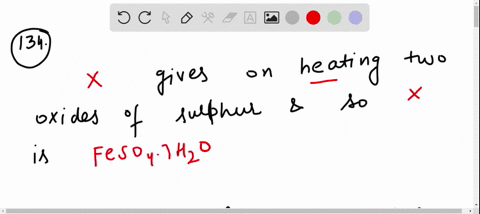 134.
X gives on heating two
oxides of sulphur & so X
is FeSO4.7H2O